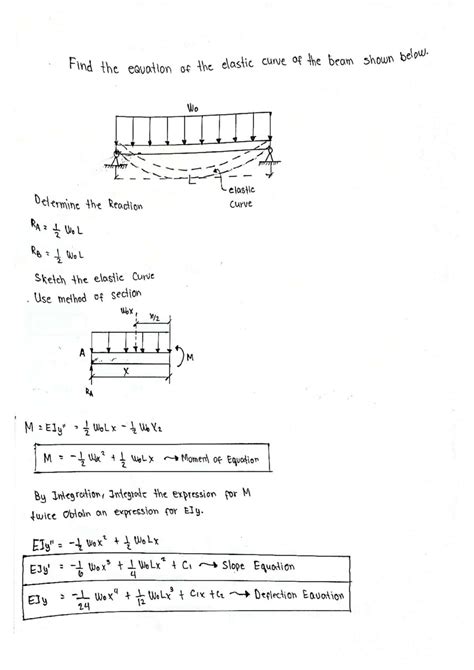 Find the equation of the elastic curve of the beam shown below.
Wo
L
elastic
curve
Determine the Reaction
RA = 1/2 WoL
RB = 1/2 WoL
Sketch the elastic Curve
. Use method of section
Wox
x/2
A
M
x
RA
M = EJy" = 1/2 WoLx - 1/2 WoX2
M = -1/2 Wx² + 1/2 WoLx → Moment of Equation
By Integration, Integrate the expression for M
twice Obtain an expression for EJy.
EJy" = -1/2 Wox² + 1/2 WoLx
EJy' = -1/6 Wox³ + 1/4 WoLx² + C1 → Slope Equation
EJy = -1/24 Wox⁴ + 1/12 WoLx³ + C1x + C2 → Deflection Equation